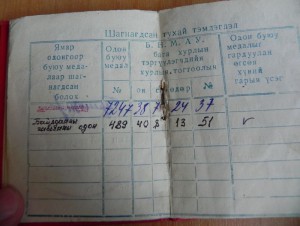 Шагнагдсан тухай тэмдэглэл
Ямар
одонгоор
буюу меда-
лаар шаг-
нагдсан
болох
Одон
буюу
медал.
№
Б. Н. М. А. У.
бага хурлын
тэргүүлэгчдийн
хурлын тогтоолын
он сар өдөр №
Одон буюу
медалыг
гардуулан
өгсөн
хүний
гарын үсэг
7247 38 7 24 37
Байлдааны
гавьяаны одон 489 40 3 13 51